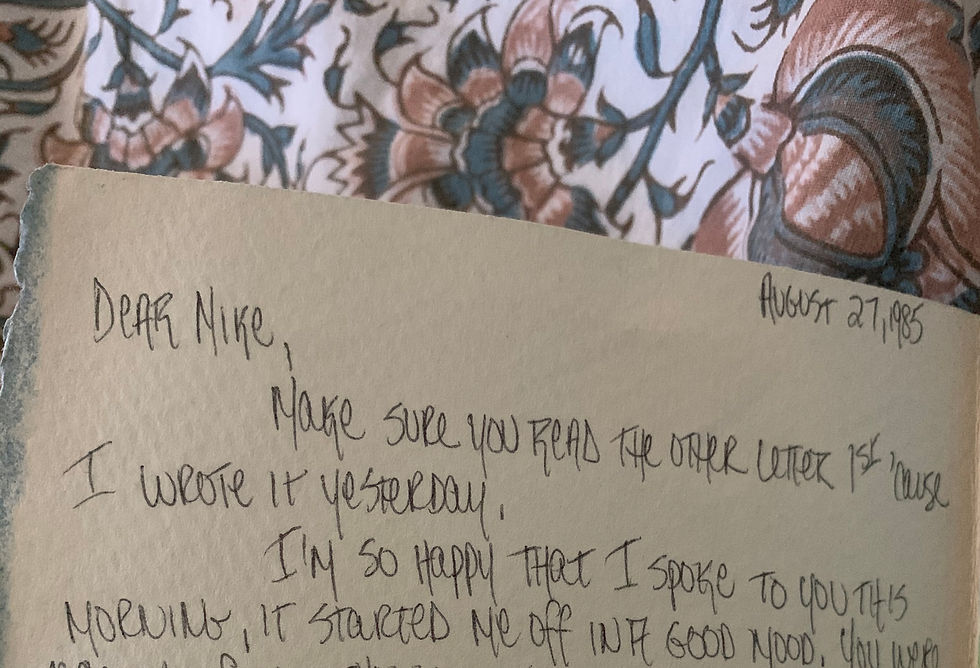 August 27, 1985
Dear Mike,
Make sure you read the other letter 1st 'cause
I wrote it yesterday.
I'm so happy that I spoke to you this
morning, it started me off in a good mood. You were